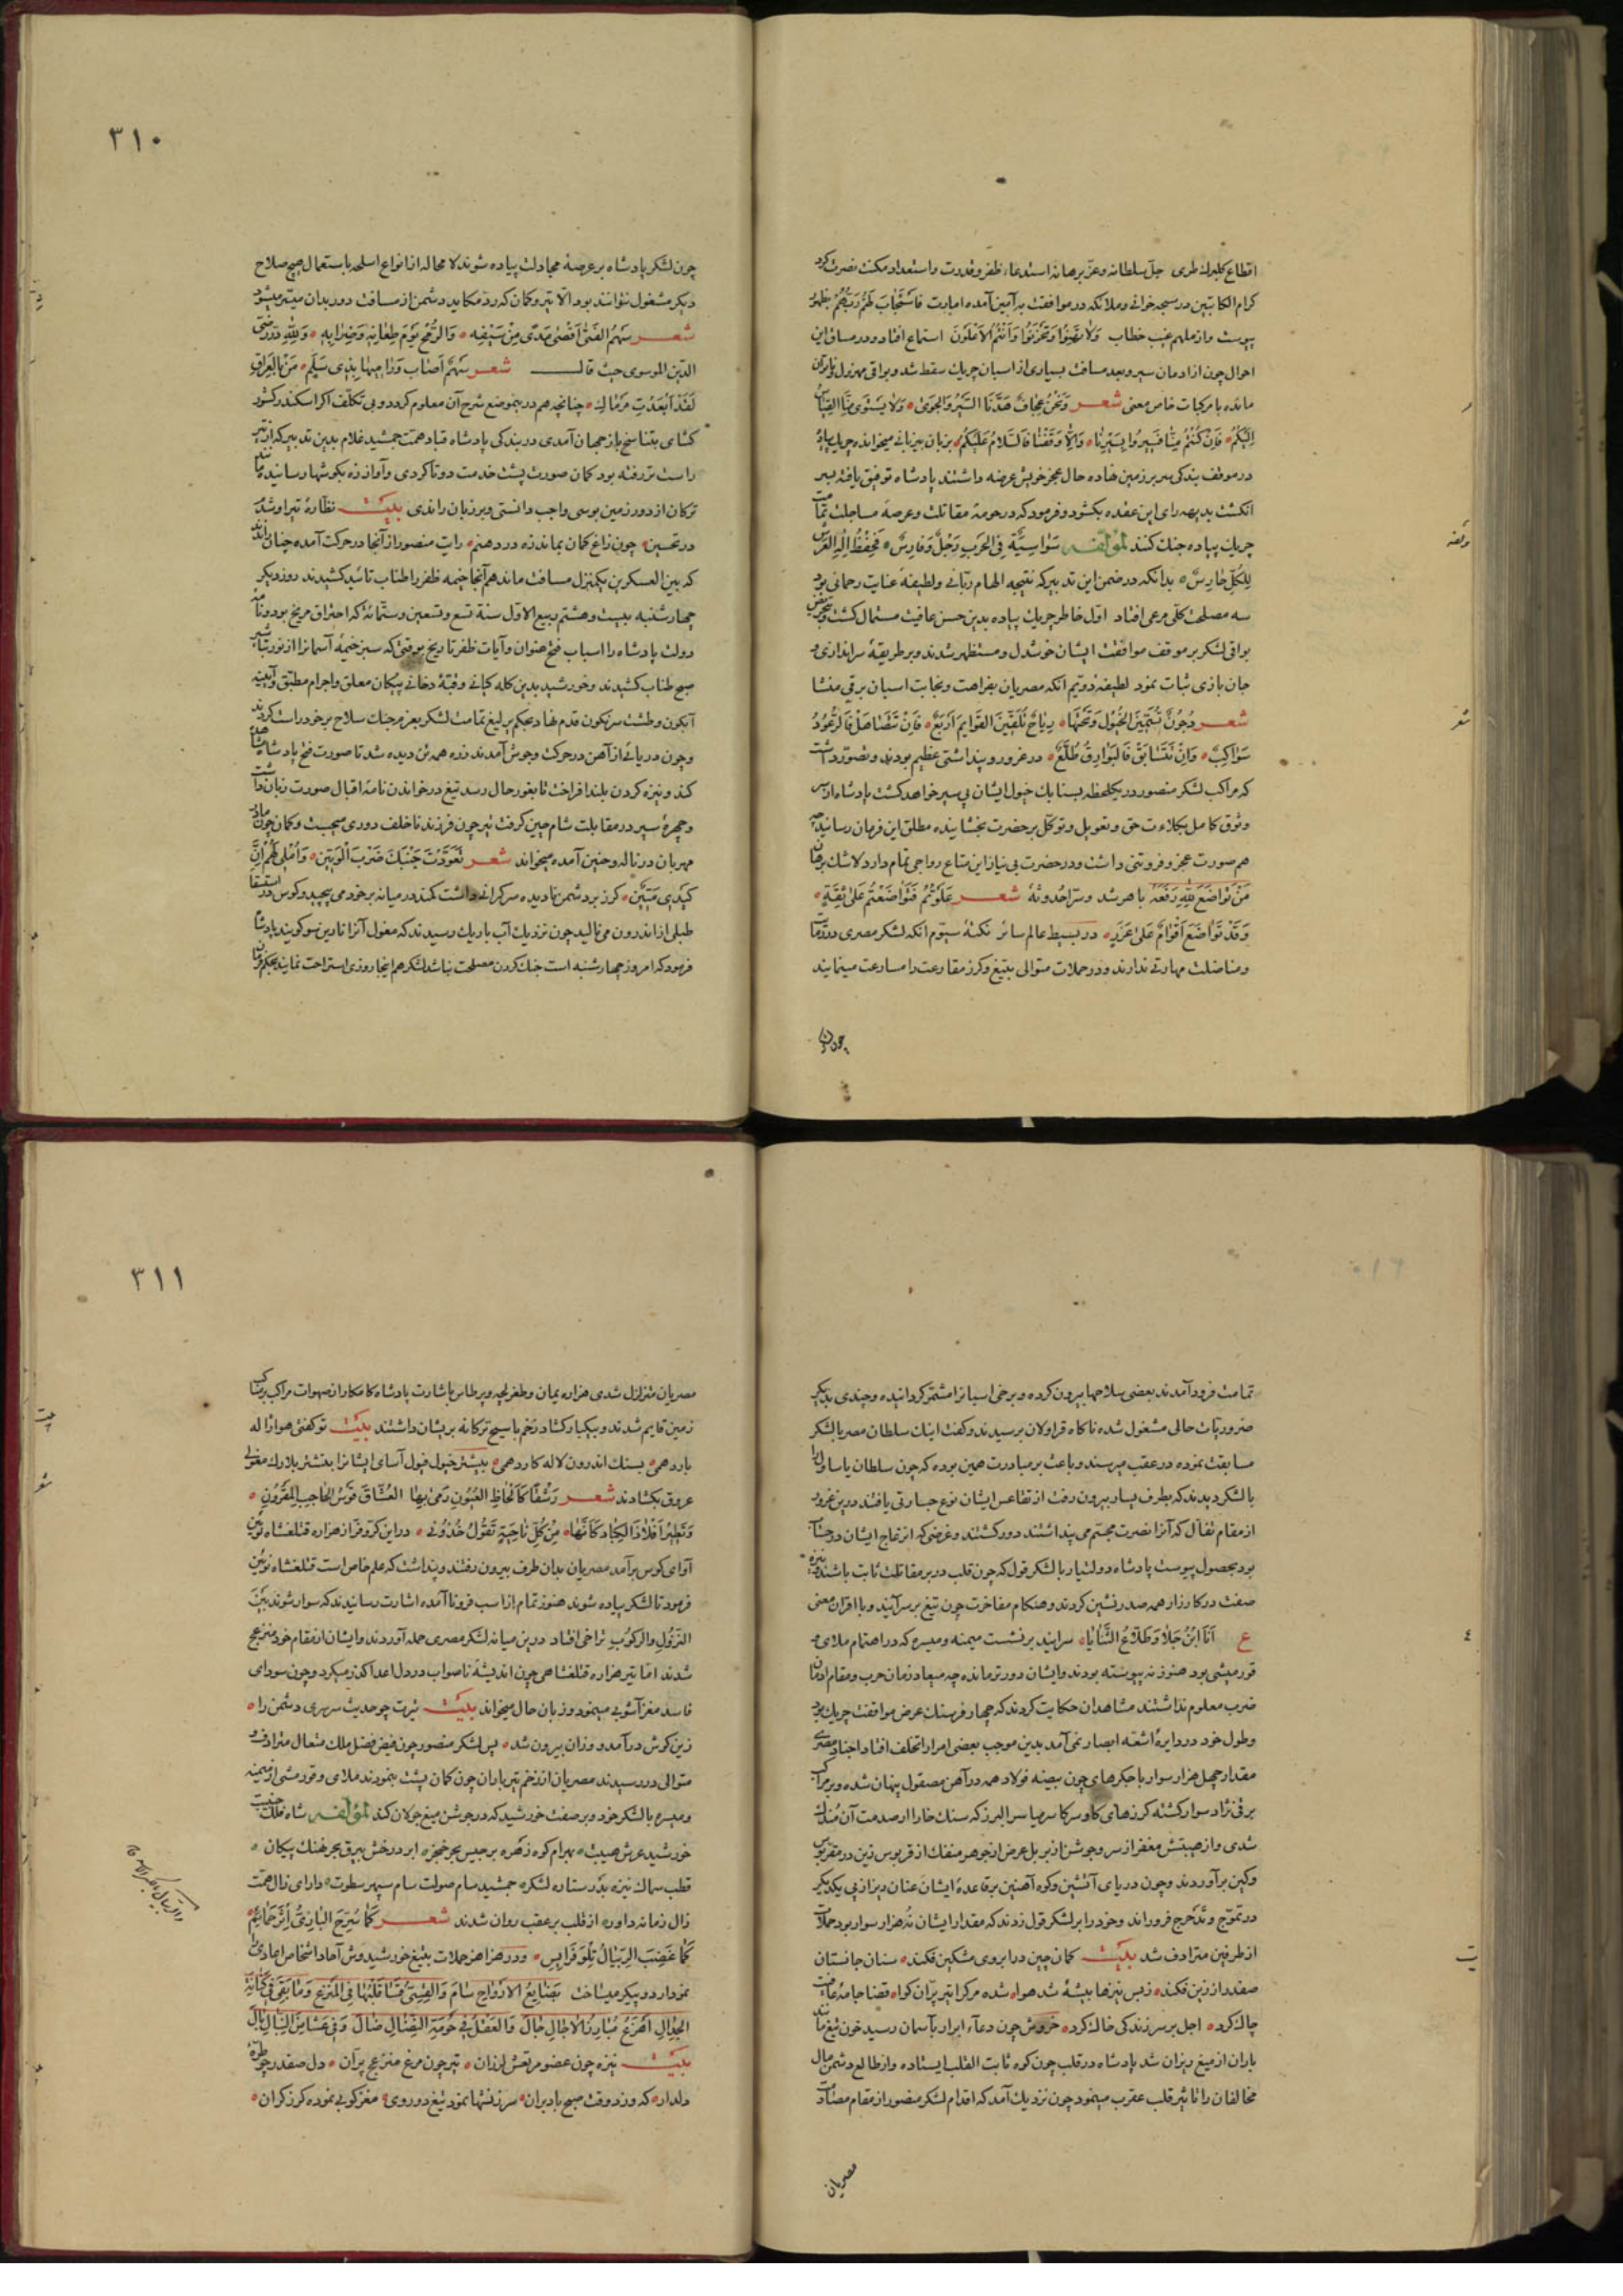 اقطاع کلبرك طری جلّ سلطانه وعزّ برهانه استدعاء ظفر وقدرت واستعداد مکنت نصرت کرد
کرام الکاتبین در سبحه خوانی وملائکه در موافقت به آمین آمده امارت فَاسْتَجَابَ لَهُمْ رَبُّهُمْ بظهور
پیوست واز ملهم غیب خطاب وَلَا تَهِنُوا وَلَا تَحْزَنُوا وَأَنْتُمُ الْأَعْلَوْنَ استماع افتاد ودر مساق این
احوال چون از ادمان سیر وبعد مسافت بسیاری از اسبان چریك سقط شد وبواقی مهزول وناتوان
مانده با مرکبات خاص معنی شعر وَنَحْنُ عِجَافٌ هَدَّنَا السَّیْرُ وَالْجَوَی وَلَا یَسْتَوِی مِنَّا
اِلَیْکُمْ فَاِنْ کُنْتُمْ مِنَّا فَسِیرُوا بِسَیْرِنَا وَاِلَّا وَقَفْنَا فَالسَّلَامُ عَلَیْکُمْ بزبان بیزبانی میخوانده چریك پیاده
در موقف بندکی سر بر زمین نهاده حال عجز خویش عرضه داشتند پادشاه توفیق یافته بسر
انکشت بدیهه رای این عقده بکشود وفرمود که در حومهٔ مقاتلت وعرصهٔ مساجلت تمامت
چریك پیاده جنك کنند لمؤلفه سَوَاسِیَّةٌ فِی الْحَرْبِ رَجْلٌ وَفَارِسٌ فَحِفْظُ اِلٰهِ الْعَرْشِ
لِلْکُلِّ حَارِسٌ بدانکه در ضمن این تدبیر که نتیجه الهام ربّانی ولطیفهٔ عنایت رحمانی بود
سه مصلحت کلّی مرعی افتاد اوّل خاطر چریك پیاده بدین حسن عاقبت مستمال کشت
بواقی لشکر بر موقف موافقت ایشان خوشدل ومستظهر شدند وبر طریقهٔ سراندازی و
جان بازی ثبات نمود لطیفهٔ دویّم آنکه مصریان بفراهت ونجابت اسبان برقی منشا
شعر
سَوَاکِبُ وَاِنْ تَتَسَابَقْ فَالْبَوَارِقُ طُلَّعٌ در غرور وپنداشتی عظیم بودند وتصوّر داشت
که مراکب لشکر منصور در یکلحظه بسنابك خیول ایشان پی سپر خواهد کشت پادشاه از سر
وثوق کامل بکلاءت حق وتعویل وتوکّل بر حضرت بخشاینده مطلق این فرمان رسانید
هم صورت عجز وفروتنی داشت ودر حضرت بی نیاز این متاع رواجی تمام دارد لاشك برهان
مَنْ تَوَاضَعَ لِلّٰهِ رَفَعَهُ باهر شد وسرّ احدوثهٔ شعر عَلَوْتُمْ فَتَوَاضَعْتُمْ عَلٰی ثِقَةٍ
وَقَدْ تَوَاضَعَ اَقْوَامٌ عَلٰی غَرَرٍ در بسیط عالم سائر نکتهٔ سیّوم آنکه لشکر مصری در رمات
ومناضلت مهارتی ندارند ودر حملات متوالی بتیغ وکرز مقارعت را مسارعت مینمایند
چون
۳۱۰
چون لشکر پادشاه بر عرصهٔ مجادلت پیاده شوند لا محاله از انواع اسلحه باستعمال هیچ صلاح
دیکر مشغول نتوانند بود الّا تیر وکمان که ردّ مکاید دشمن از مسافت دور بدان میسّر میشود
شعر سَهْمُ الْفَتٰی اَقْصٰی مَدًی مِنْ سَیْفِهِ وَالرُّمْحُ یَوْمَ طِعَانِهِ وَضِرَابِهِ وَلِلّٰهِ دَرُّ رضی
الدّین الموسوی حیث قال شعر سَهْمٌ اَصَابَ وَرَامِیهَا بِذِی سَلَمٍ مَنْ بِالْعِرَاقِ
لَقَدْ اَبْعَدْتِ مَرْمَاكِ چنانچه هم در ینموضع شرح آن معلوم کردد وبی تکلّف اکر اسکندر کشور
کشای بتناسخ باز جهان آمدی در بندکی پادشاه قباد همّت جمشید غلام بدین تدبیر که از تیر
راست تر رفته بود کمان صورت پشت خدمت دوتا کردی وآواز زه بکوشها رسانید
ترکان از دور زمین بوسی واجب دانستی وبر زبان راندی بیت نظارهٔ تیر او شد
در تحسین چون زاغ کمان بماند زه در دهنم رایت منصور از آنجا در حرکت آمده چنان راند
که بین العسکرین یکمنزل مسافت ماند هم آنجا خیمه ظفر را طناب تائید کشیدند روز دیکر
چهارشنبه بیست وهشتم ربیع الاوّل سنة تسع وتسعین وستّمائه که احتراق مرّیخ بود
دولت پادشاه را اسباب فتح عنوان وآیات ظفر تاریخ بوقتی که سبز خیمهٔ آسمانرا از نور تباشیر
صبح طناب کشیدند وخورشید بدین کله کیانی وقبّهٔ دخانی پیکان معلق واجرام مطبّق
آبکون وطشت سرنکون قدم نهاد بحکم یرلیغ تمامت لشکر بعزم جنك سلاح بر خود راست کردند
وچون دریائی از آهن در حرکت وجوش آمدند زره همه تن دیده شد تا صورت فتح پادشاه مشاهده
کند ونیزه کردن بلند افراخت تا بغور حال رسد تیغ در خواندن نامهٔ اقبال صورت زبان داشت
وچهرهٔ سپر در مقابلت شام چین کرفت تیر چون فرزند ناخلف دوری میجست وکمان چون مادر
مهربان در ناله وحنین آمده میخواند شعر تَعَوَّدْتَ وَاُمْلِی لَهُمْ اِنَّ
کَیْدِی مَتِینٌ کرز بر دشمن نادیده سرکرانی داشت کمند در میانه بر خود می پیچید وکوس
طبلی از اندرون می نالید چون نزدیك آب باریك رسیدند که مغول آنرا نارین سو کویند پادشاه
فرمود که امروز چهارشنبه است جنك کردن مصلحت نباشد لشکر هم اینجا روزی استراحت نمایند بحکم فرمان
تمامت فرود آمدند بعضی سلاحها بیرون کرده وبرخی اسبانرا مشمّر کردانیده وچندی بدیکر
ضروریات حالی مشغول شده ناکاه قراولان برسیدند وکفت اینك سلطان مصر با لشکر
مسابقت نموده در عقب میرسند وباعث بر مبادرت همین بوده که چون سلطان یاساول را
با لشکر دیدند که بطرف یسار بیرون رفت از تقاعس ایشان نوع جسارتی یافتند در ین غرور
از مقام تفأل که آنرا نصرت مجسّم می پنداشتند دور کشتند وغرضی که انزعاج ایشان
بود بحصول پیوست پادشاه دولتیار با لشکر قول که چون قلب در بر مقاتلت ثابت باشند
صفت در کارزار همه صدر نشین کردند وهنکام مفاخرت چون تیغ بر سر آیند وبا اقران معنی
ع اَنَا ابْنُ جَلَا وَطَلَّاعُ الثَّنَایَا سرایند بر نشست میمنه ومیسره که در اهتمام ملای و
قورمیشی بود هنوز نه پیوسته بودند وایشان دورتر مانده چه میعاد زمان حرب ومقام ادمان
ضرب معلوم نداشتند مشاهدان حکایت کردند که چهار فرسنك عرض مواقفت چریك بود
وطول خود در دایرهٔ اشعّه ابصار نمی آمد بدین موجب بعضی امرا را تخلف افتاد اجناد مصری
مقدار چهل هزار سوار با جکرهای چون بیضه فولاد همه در آهن مصقول پنهان شده وبر مراکب
برق نژاد سوار کشته کرزهای کاو سر کا سرمیا سر البرز که سنك خارا از صدمت آن
شدی واز هیبتش مغفر از سر وجوشن از بر بل عرض از جوهر منفك از قربوس زین در
وکین بر آوردند وچون دریای آتشین وکوه آهنین بر قاعدهٔ ایشان عنان ریز از پی یکدیکر
در تموّج وتدحرج فرو راند وخود را بر لشکر قول زدند که مقدار ایشان نُه هزار سوار بود حملات
از طرفین مترادف شد بیت کمان چین در ابروی مشکین فکند سنان جانستان
صفدر از زین فکند ز بس نیزها بیشهٔ شد هوا شده مرکرا تیر پرّان کوا قضا جامهٔ عافیت
چاك کرد اجل بر سر زندکی خاك کرد خروش چون دعآء ابرار بآسمان رسید خون تیغ مانند
باران از میغ ریزان شد پادشاه در قلب چون کوه ثابت القلب ایستاده واز طالع دشمن مال
مخالفان را تاثیر قلب عقرب مینمود چون نزدیك آمد که اقدام لشکر منصور از مقام مصادمت
مصریان
۳۱۱
مصریان متزلزل شدی هزاره یمان وطغریلجه وبرطاس باشارت پادشاه کامکار از صهوات مراکب بر مناکب
زمین قایم شدند وبیکبار کشاد زخم یاسیج ترکانه بریشان داشتند بیت توکفتی هوا ژاله
بارد همی بسنك اندرون لاله کارد همی بیشتر خیول فیول آسای ایشانرا بنشتر بلارك
عروق بکشادند شعر رَشْقًا کَاَلْحَاظِ الْعُیُونِ رَمٰی بِهَا الْعُشَّاقَ قَوْسُ الْحَاجِبِ الْمَقْرُونِ
وَتَطِیرُ اَفْلَاذُ الْکِبَادِ کَاَنَّهَا مِنْ کُلِّ نَاحِیَةٍ تَقُولُ خُذُونِی در این کرّ وفرّ از هزاره قتلغشاه نوئین
آوای کوس برآمد مصریان بدان طرف بیرون رفتند وپنداشت که علم خاص است قتلغشاه نوئین
فرمود تا لشکر پیاده شوند هنوز تمام از اسب فرو نا آمده اشارت رسانیدند که سوار شوند بین
النّزول والرکوب تراخی افتاد در ین میانه لشکر مصری حمله آوردند وایشان از مقام خود منزعج
شدند امّا تیر هزاره قتلغشاهی چون اندیشهٔ ناصواب در دل اعدا کذر میکرد وچون سودای
فاسد مغز آشوبی مینمود وزبان حال میخواند بیت تیرت چو حدیث سرسری دشمن را
زین کوش درآمد ووزان بیرون شد پس لشکر منصور چون فیض فضل ملك متعال مترادف و
متوالی در رسیدند مصریان از زخم تیر باران چون کمان پشت بنمودند ملای وقورمشی از میمنه
ومیسره با لشکر خود وبر صفت خورشید که در جوشن میغ جولان کند لمؤلفه شاه فلك جنیبت
خورشید عرش هیبت بهرام کوه زهره برجیس بحر خنجر ابر درخش بیرق بحر خنك پیکان
قطب سماك نیزه بدر ستاره لشکر جمشید سام صولت سام سپهر سطوت دارای زال همّت
زال زمانه داور از قلب بر عقب روان شدند شعر
کَمَا غَضِبَ الرِّئْبَالُ تِلْوَ فَرَایِسِ ودر هزاهز حملات بتیغ خورشید وش آحاد اشخاص اعادی را
نمودار دو پیکر میساخت بَضَایِعُ الْاَرْوَاحِ
الْجِدَالِ اَهْزَعُ مُبَارِزُ الْآجَالِ جَالَ وَالْعَقْلُ فِی حَوْمَةِ الْقِتَالِ ضَالَ
بیت نیزه چون عضو مرتعش لرزان تیر چون مرغ منزعج پرّان دل صفدر چو طرّهٔ
دلدار که وزد وقت صبح باد بران سرزنشها نمود تیغ دو روی مغز کوبی نموده کرز کران